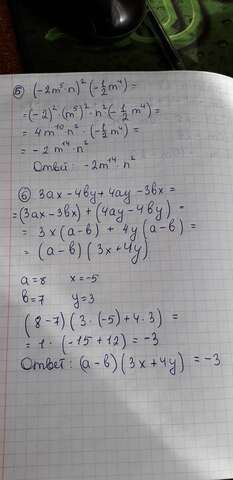 ⑤ (-2m⁵ n)² (-½m⁴) =
= (-2)² · (m⁵)² · n² (-½m⁴) =
= 4m¹⁰ · n² · (-½m⁴) =
= -2m¹⁴ · n²
Ответ: -2m¹⁴ · n²
⑥ 3ax - 4by + 4ay - 3bx =
= (3ax - 3bx) + (4ay - 4by) =
= 3x(a-b) + 4y(a-b) =
= (a-b)(3x+4y)
a=8 x=-5
b=7 y=3
(8-7)(3·(-5)+4·3) =
= 1·(-15+12) = -3
Ответ: (a-b)(3x+4y) = -3